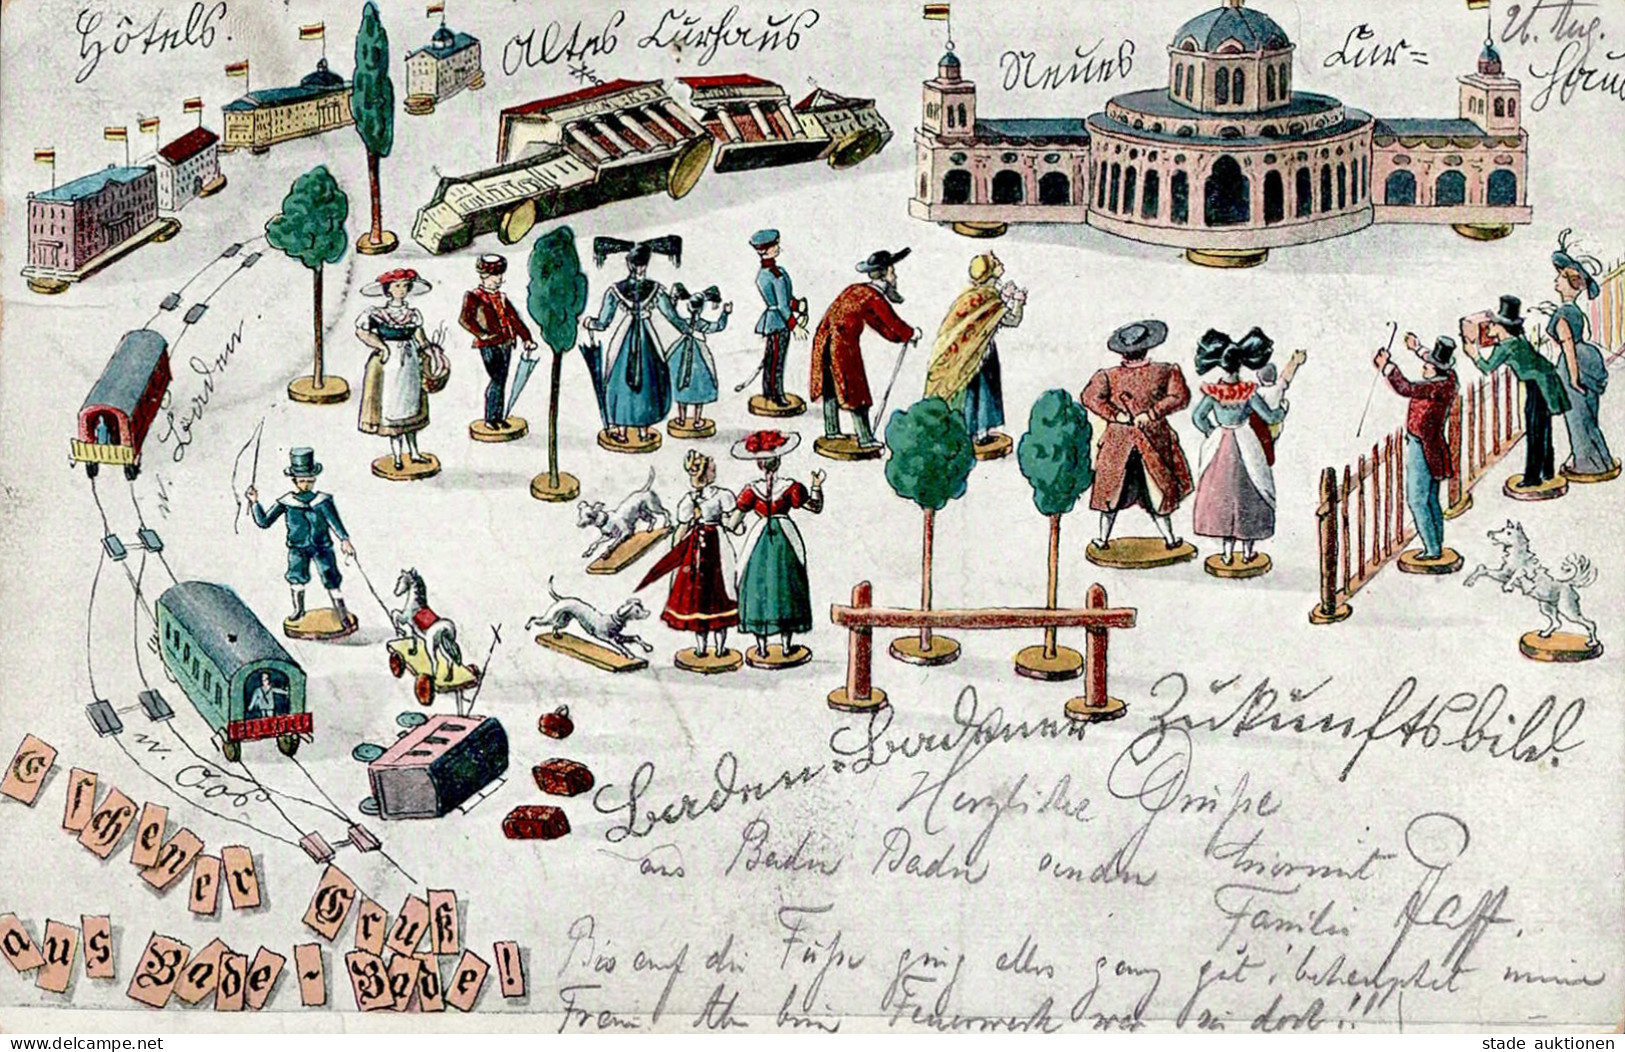 Hôtels.
Altes Curhaus
Neues Cur=
Haus
26. Aug.
n. Baden.
n. Oos
E Ischener Gruß
aus Bade-Bade!
Baden-Badener Zukunftsbild.
Herzliche Grüße
aus Baden Baden senden hiermit
Familie Raff.
Bis auf die Füße ging alles ganz gut, behauptet meine
Frau. Aber beim Feuerwerk war sie dort!!
delcampe.net
stade auktionen